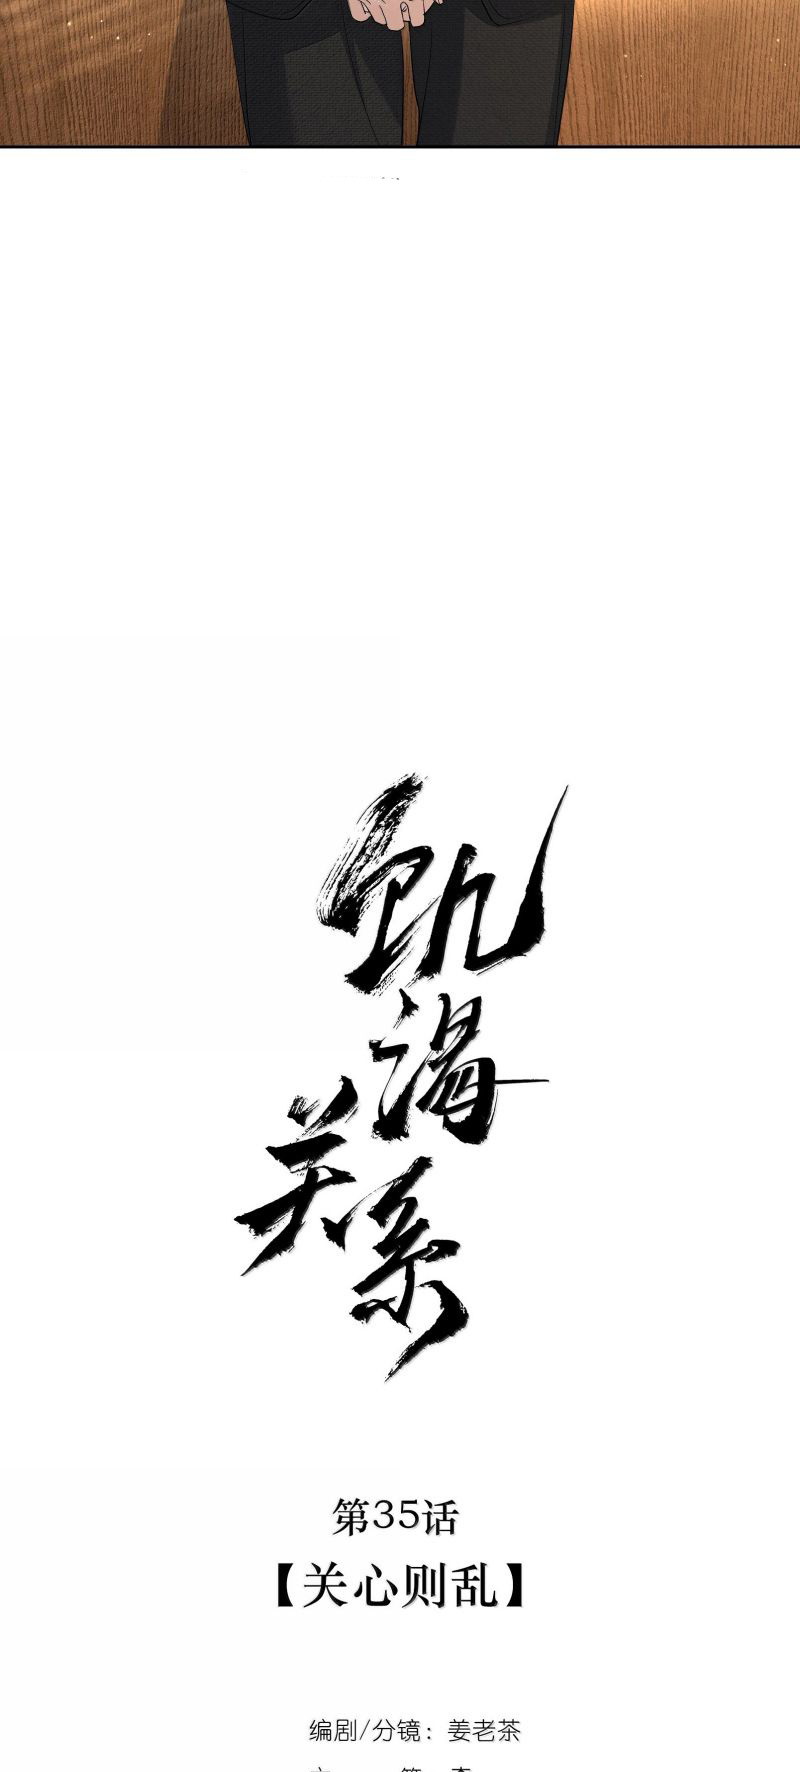 饥渴
关系
第35话
【关心则乱】
编剧/分镜：姜老茶